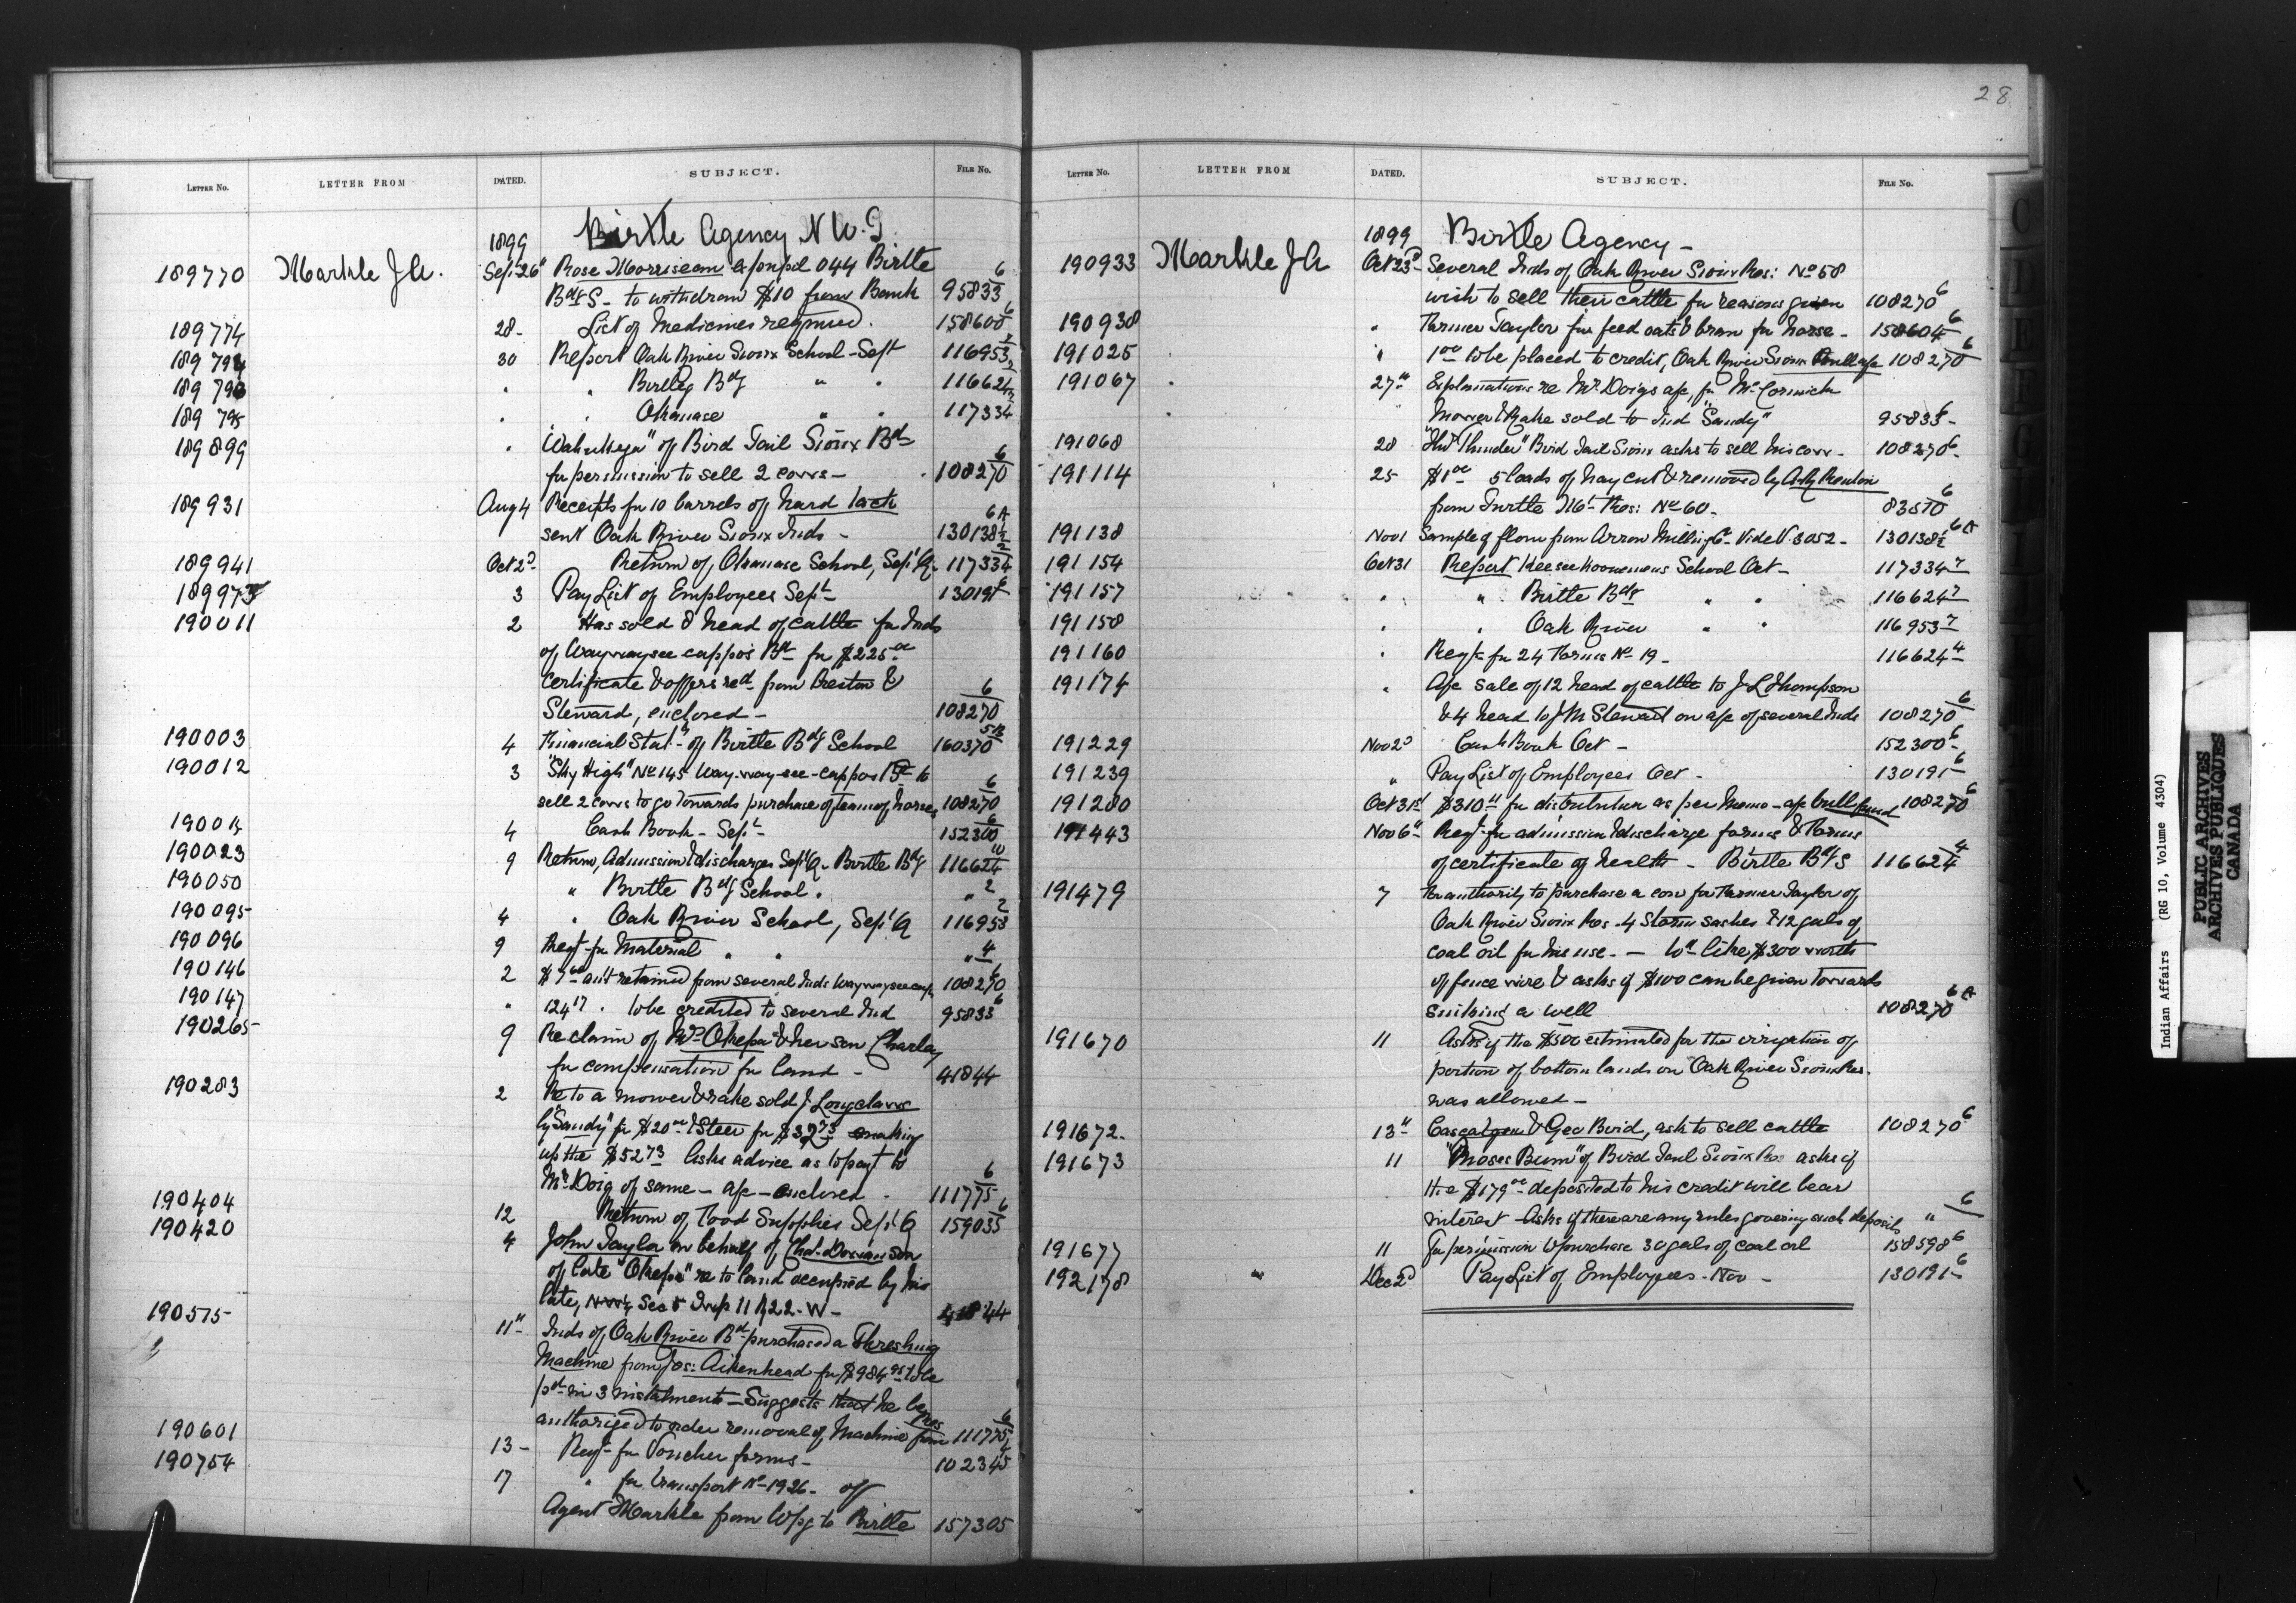 28
LETTER No. LETTER FROM DATED. SUBJECT. FILE No.
1899 Birtle Agency N W. T
189770 Markle J A. Sept 26" Rose Morriseau expupil 044 Birtle
Bdg S - to withdraw $10 from Bank 95833 6
189774 28- List of Medicines required. 158600 6
30 Report Oak River Sioux School - Sept 116953 2
" " Birtle Bdg " " 116624 2
189 795 " " Okanase " " 117334 2
189899 " of Bird Tail Sioux Bd
for permission to sell 2 cows - 108270 6
189931 Aug 4 Receipts for 10 barrels of hard tack
sent Oak River Sioux Inds - 130138½ 6A
189941 Oct 2d Return of, Okanase School, Sept Q. 117334 2
189973 3 Pay List of Employees Sept 130191 6
190011 2 Has sold 8 head of cattle for Inds
of Waywaysee cappo's Bd for $225 00
Certificate & offers recd from Preston &
Steward, enclosed - 108270 6
190003 4 Financial Statt of Birtle Bdg School 160370 5
190012 3 "Sky High" No 145 Way-way-see-cappos Bd to
sell 2 cows to go towards purchase of team of horses 108270 6
190014 4 Cash Book - Sept 152300 6
190023 9 Return, Admission & discharges Sept Q - Birtle Bdg 116624 10
190050 " Birtle Bdg School. " 2
190095 4 " Oak River School, Sept Q 116953 2
190096 9 Reqt for Material " " " 4
190146 2 amt retained from several Inds Waywayseecap 108270 6
190147 " 124 17 . to be credited to several Ind 95833 6
190265 9 Re claim of Mrs Okepa & her son Charley
for compensation for land - 41844
190283 2 Re to a mower & rake sold J. Longclaws
by "Sandy" for $20 00 & Steer for $32 73 making
up the $52 73 Asks advice as to payt to
Mr Doig of same - a/c - enclosed - 111775 6
190404 12 Return of Food Supplies Sept Q 159035 6
190420 4 John Taylor on behalf of Chas. son
of late "Okepa" re to land occupied by his
late, Sec 5 Twp 11 R 22 - W - 41844
190575 11" Inds of Oak River Bd purchased a Threshing
Machine from Jos: Aikenhead for $984 to be
pd in 3 instalments - Suggests that he be
authorized to order removal of Machine from Res 111775 6
190601 13 - Reqt for Voucher forms - 102345
190754 17 " for transport No 1926 - off
Agent Markle from Wpg to Birtle 157305
LETTER No. LETTER FROM DATED. SUBJECT. FILE No.
1899 Birtle Agency -
190933 Markle J A Oct 23d Several Inds of Oak River Sioux Res: No 58
wish to sell their cattle for reasons given 108270 6
190938 " Farmer Taylor for feed oats & bran for horse - 158604 6
191025 " 1 00 to be placed to credit, Oak River Sioux a/c 108270 6
191067 27" Explanations re Mr. Doigs a/c for McCormick
Mower & Rake sold to Ind "Sandy" 95833 6
191068 28 Thunder" Bird Tail Sioux asks to sell his cow - 108270 6
191114 25 $1 00 5 loads of hay cut & removed by
from Turtle Mt Res: No 60 - 83510 6
191138 Nov 1 Sample of flour from Arrow Milling Co - Vide V. 3052 - 130138½ 6A
191154 Oct 31 Report Keeseekoowenins School Oct - 117334 7
191157 " " Birtle Bdg " " 116624 7
191158 " " Oak River " " 116953 7
191160 " Reqt for 24 Forms No 19 - 116624 4
191174 " A/c sale of 12 head of cattle to J. L Thompson
& 4 head to J M Steward on a/c of several Inds 108270 6
191229 Nov 2d Cash Book Oct - 152300 6
191239 " Pay List of Employees Oct - 130191 6
191280 Oct 31st $310 11 for distribution as per Memo - a/c bull fund 108270 6
191443 Nov 6" Reqt for admission & discharge forms & Forms
of certificate of health - Birtle Bdg S 116624 4
191479 7 For authority to purchase a cow for Farmer Taylor of
Oak River Sioux Res - 4 storm sashes & 12 gals of
coal oil for his use. - Wd like $300 worth
of fence wire & asks if $100 can be given towards
sinking a well 108270 6A
191670 11 Asks if the $500 estimated for the irrigation of
portion of bottom lands on Oak River Sioux Res.
was allowed -
191672 - 13" & Geo Bird, ask to sell cattle 108270 6
191673 11 "Moses Bunn" of Bird Tail Sioux Res asks if
the $179 00 deposited to his credit will bear
interest - Asks if there are any rules govering such deposits " 6
191677 11 For permission to purchase 30 gals of coal oil 158598 6
192178 " Dec 2d Pay List of Employees - Nov - 130191 6
Indian Affairs (RG 10, Volume 4304)
PUBLIC ARCHIVES
ARCHIVES PUBLIQUES
CANADA